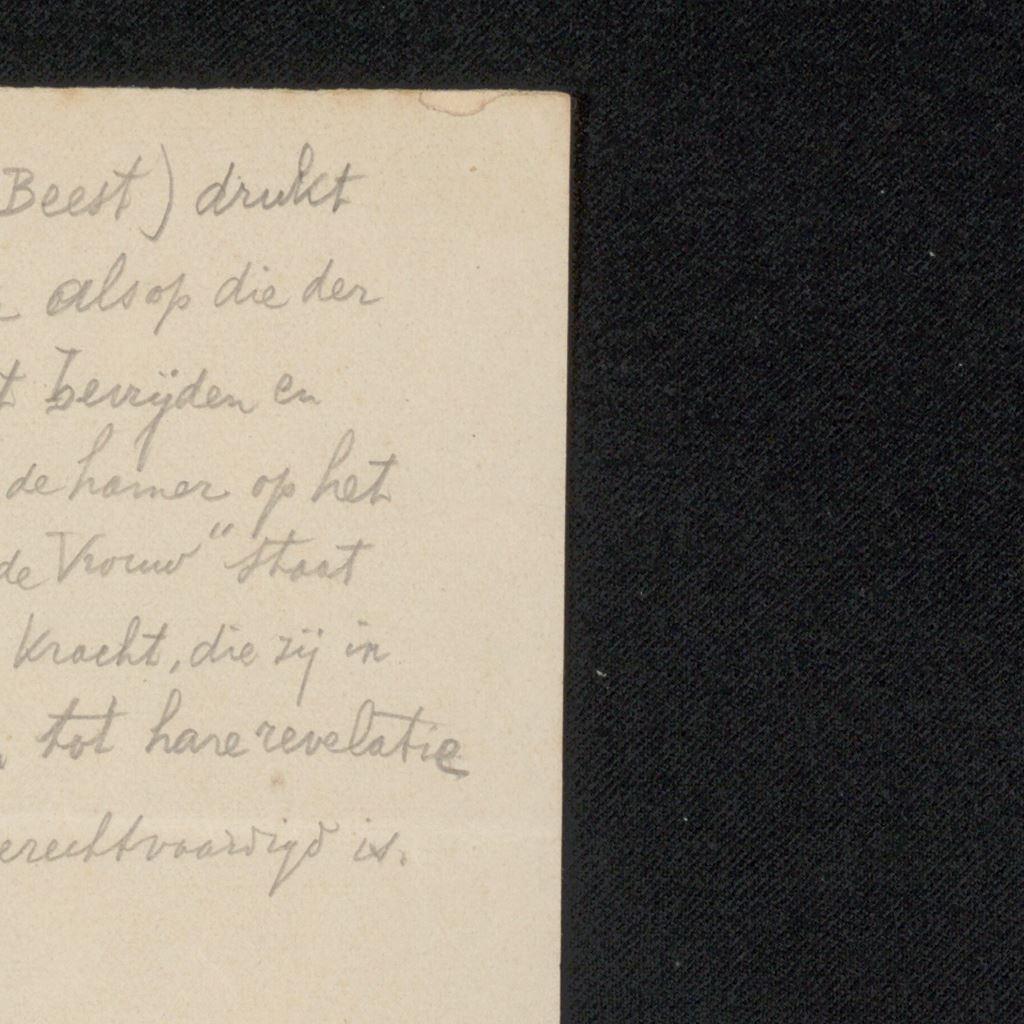 Beest) drukt
als op die der
t bevrijden en
de hamer op het
de Vrouw" staat
Kracht, die zij in
tot hare revelatie
erechtvaardigd is.